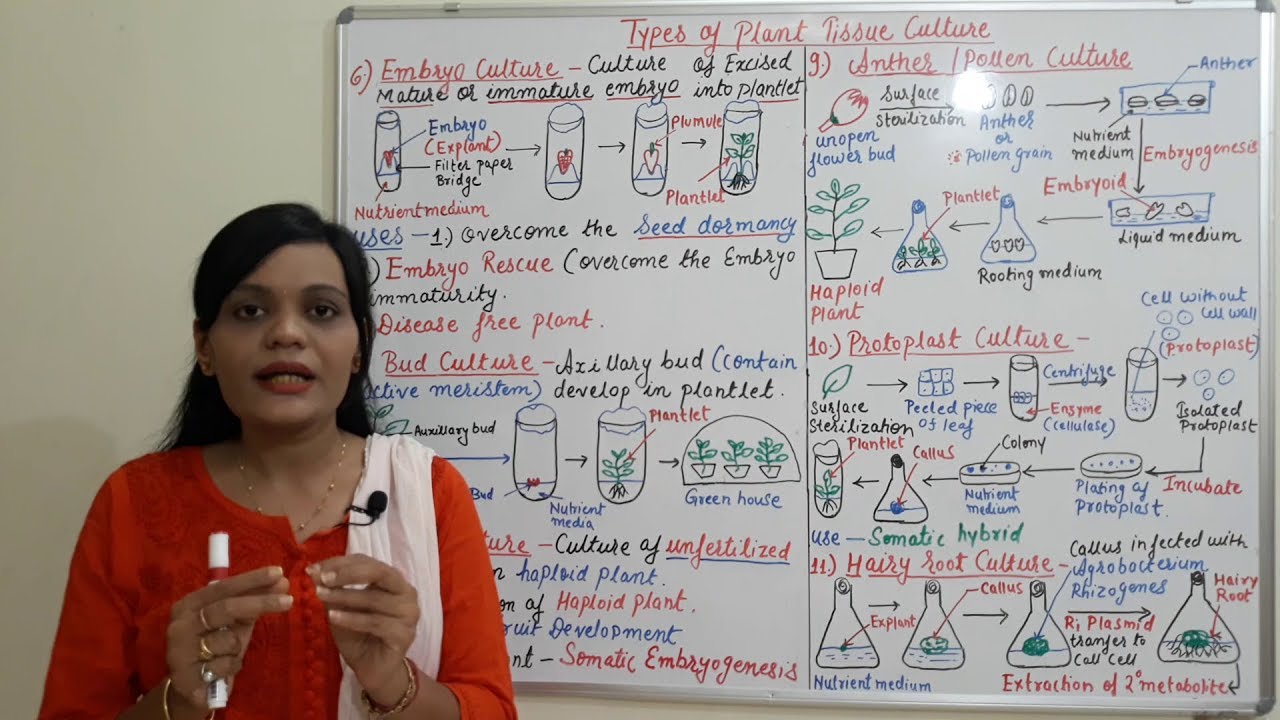 Types of Plant Tissue Culture
6.) Embryo Culture - Culture of Excised
Mature or immature embryo into plantlet
Embryo
(Explant)
Filter paper
Bridge
Nutrient medium
Plumule
Plantlet
uses - 1.) Overcome the Seed dormancy
) Embryo Rescue (overcome the Embryo
immaturity.
Disease free plant.
Bud Culture - Axillary bud (contain
active meristem) develop in plantlet.
Auxillary bud
Bud
Nutrient
media
Plantlet
Green house
ture - Culture of unfertilized
n haploid plant.
on of Haploid plant.
ruit Development
nt - Somatic Embryogenesis
9.) Anther / Pollen Culture
unopen
flower bud
Surface
Sterilization
Anther
or
Pollen grain
Anther
Nutrient
medium
Embryogenesis
Embryoid
Liquid medium
Rooting medium
Plantlet
Haploid
Plant
10.) Protoplast Culture -
Surface
Sterilization
Peeled piece
of leaf
Enzyme
(cellulase)
Centrifuge
Cell without
Cell wall
(Protoplast)
Isolated
Protoplast
Incubate
Plating of
Protoplast.
Colony
Nutrient
medium
Callus
Plantlet
use - Somatic hybrid
11.) Hairy Root Culture -
Callus infected with
Agrobacterium
Rhizogenes
Explant
Callus
Nutrient medium
Ri Plasmid
tranfer to
Call Cell
Hairy
Root
Extraction of 2° metabolite